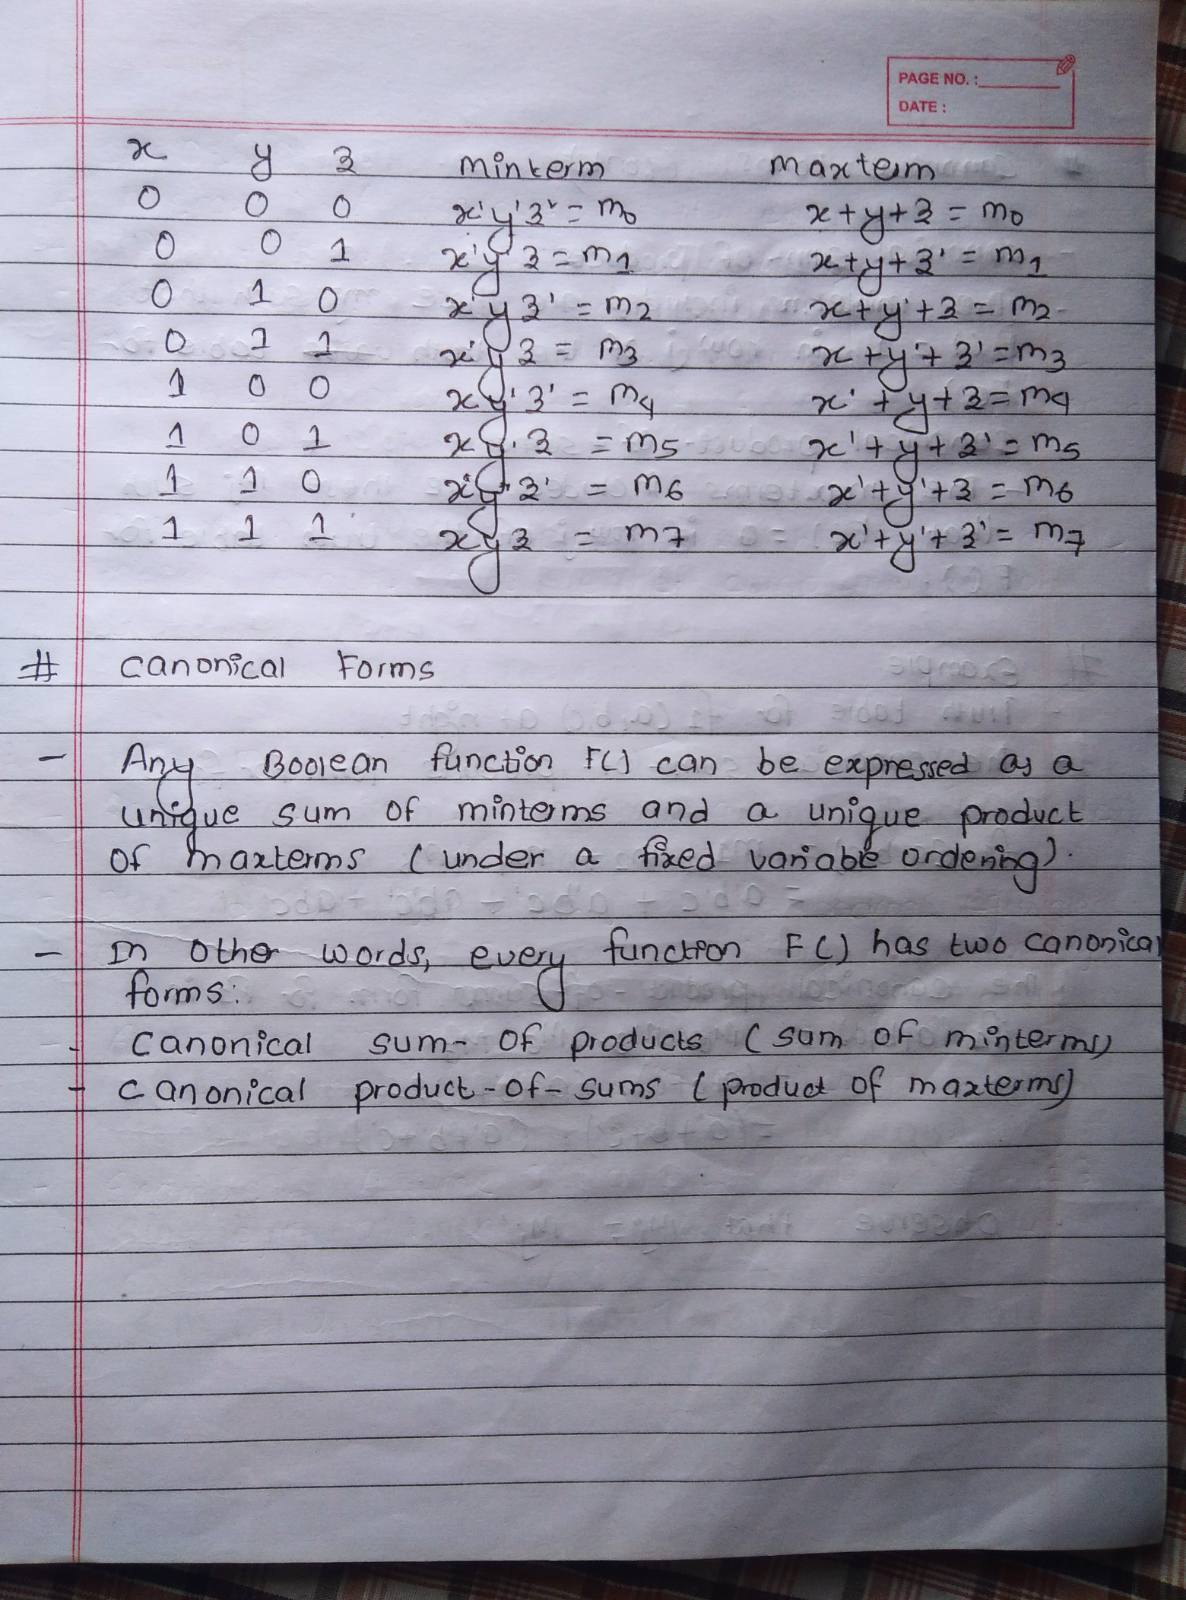 PAGE NO. :
DATE :
x y z minterm maxterm
0 0 0 x'y'z' = m0 x+y+z = m0
0 0 1 x'y'z = m1 x+y+z' = m1
0 1 0 x'yz' = m2 x+y'+z = m2
0 1 1 x'yz = m3 x+y'+z' = m3
1 0 0 xy'z' = m4 x'+y+z = m4
1 0 1 xy'z = m5 x'+y+z' = m5
1 1 0 xyz' = m6 x'+y'+z = m6
1 1 1 xyz = m7 x'+y'+z' = m7
# Canonical Forms
- Any Boolean function F() can be expressed as a
unique sum of minterms and a unique product
of maxterms (under a fixed variable ordering).
- In other words, every function F() has two canonical
forms:
- canonical sum-of products (sum of minterms)
- canonical product-of-sums (product of maxterms)